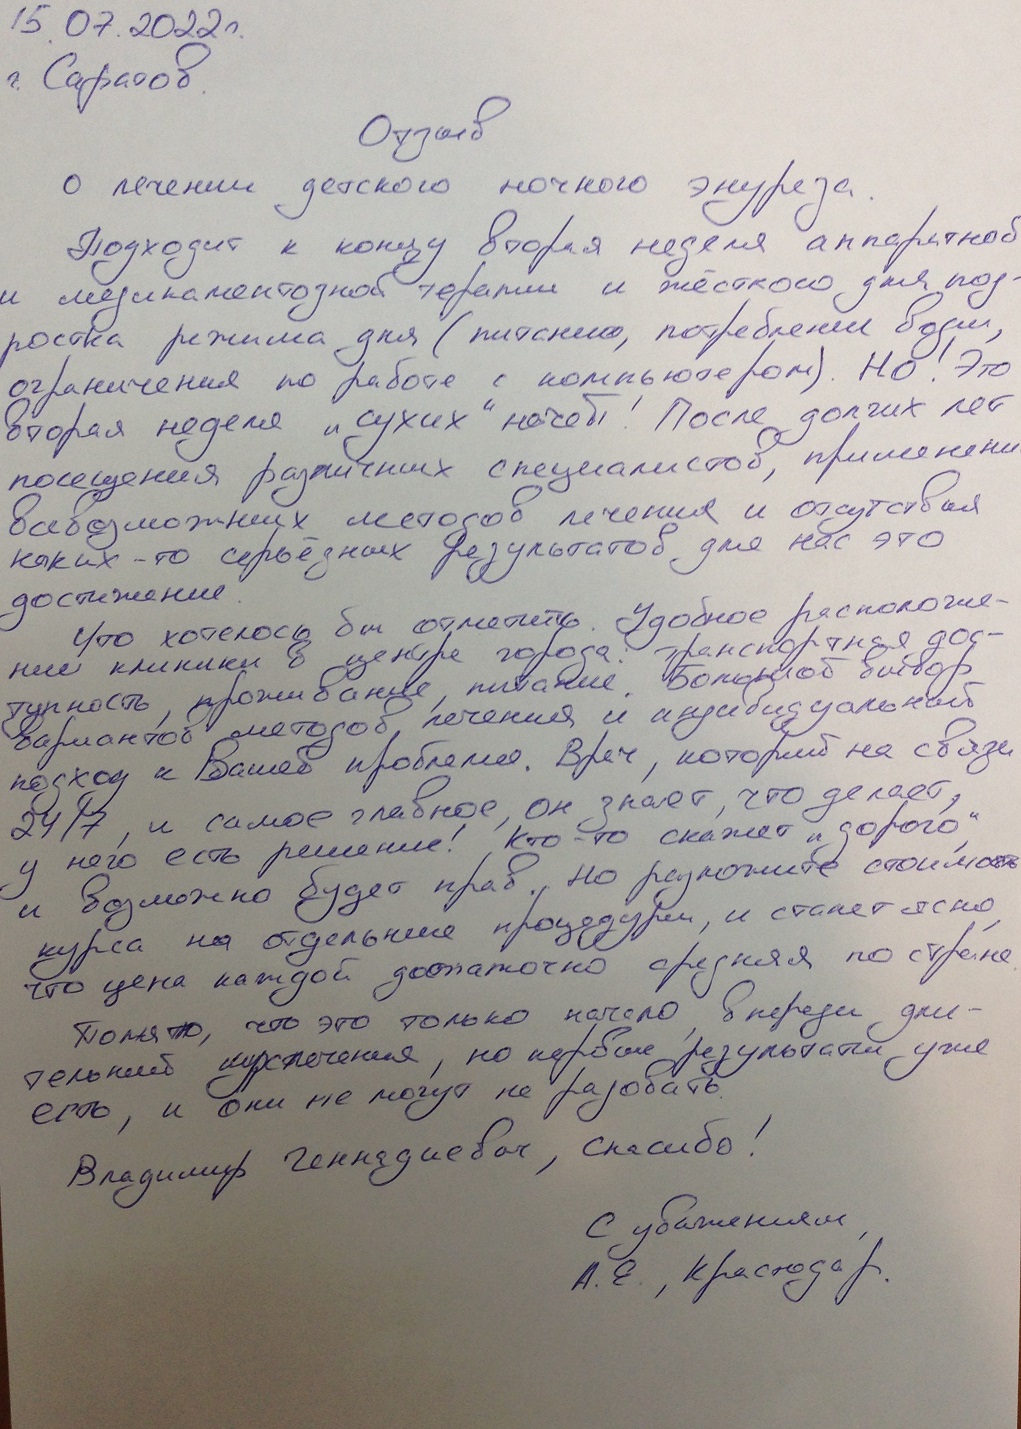 15.07.2022г.
г. Саратов.
Отзыв
о лечении детского ночного энуреза.
Подходит к концу вторая неделя аппаратной
и медикаментозной терапии и жёсткого для под-
ростка режима дня (питанию, потреблении воды,
ограничения по работе с компьютером). Но! Это
вторая неделя „сухих“ ночей! После долгих лет
посещения различных специалистов, применени
всевозможных методов лечения и отсутствия
каких-то серьёзных результатов для нас это
достижение.
Что хотелось бы отметить. Удобное расположе-
ние клиники в центре города: транспортная дос-
тупность, проживание, питание. Большой выбор
вариантов методов лечения и индивидуальный
подход к Вашей проблеме. Врач, который на связи
24/7, и самое главное, он знает, что делает,
у него есть решение! Кто-то скажет „дорого“
и возможно будет прав. Но разложите стоимость
курса на отдельные процедуры, и станет ясно,
что цена каждой достаточно средняя по стране.
Понятно, что это только начало, впереди дли-
тельный курс лечения, но первые результаты уже
есть, и они не могут не радовать.
Владимир Геннадиевич, спасибо!
С уважением,
А.Е., Краснодар.